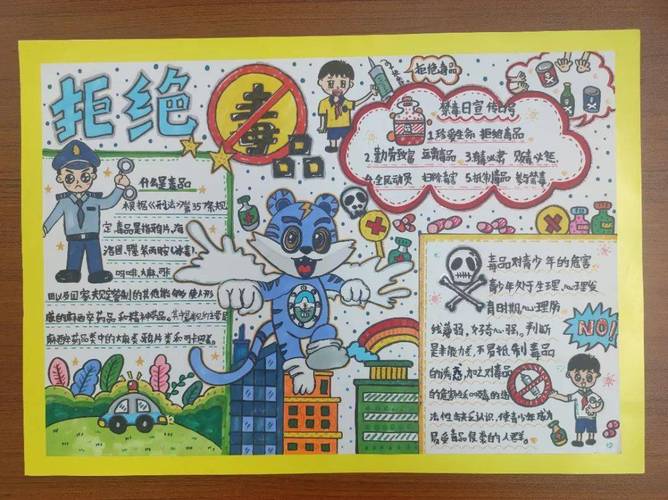 拒绝
毒品
拒绝毒品
禁毒日宣传口号
1.珍爱生命 拒绝毒品
2.勤劳致富 远离毒品 3.贩毒必害
4.全民动员 扫除毒害 5.抵制毒品 参与禁毒
什么是毒品
根据《刑法》第357条规
定,毒品是指鸦片,海
洛因,甲基苯丙胺(冰毒),
吗啡,大麻,可卡
因以及国家规定管制的其他能够使人形
瘾的麻醉药品和精神药品。
麻醉药品类中的大麻类 鸦片类和可卡因类。
毒品对青少年的危害
青少年处于生理,心理发
育时期,心理防
线薄弱,好奇心强,判断
是非能力差,不易抵制毒品
的诱惑,加之对毒品
的危害性和吸毒的违
法性缺乏认识,使青少年成为
易受毒品侵袭的人群。
NO!